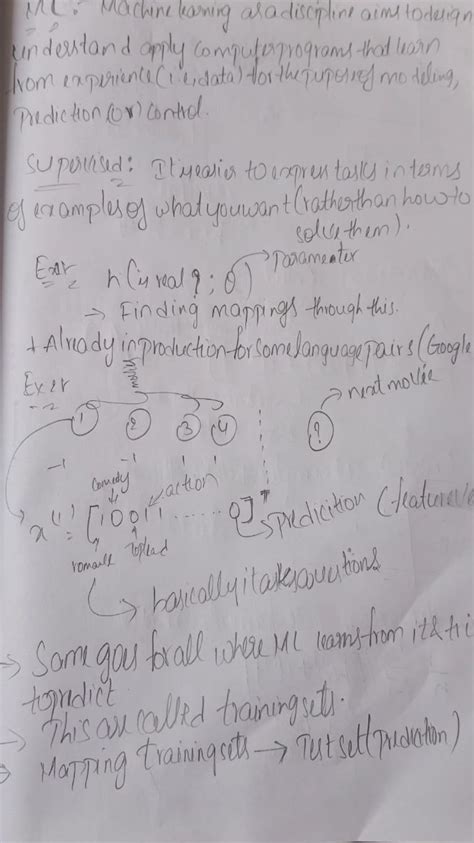 ML: Machine learning as a discipline aims to design
understand apply computer programs that learn
from experience (i.e, data) for the purpose of modeling,
Prediction (or) control.
Supervised: It is easier to express tasks in terms
of examples of what you want (rather than how to
solve them).
Ex:
h(is real? ; θ) Parameter
→ Finding mappings through this.
+ Already in production for some language pairs (Google
Ex:
1 2 3 4 ? next movie
-1 -1 1 1
comedy action
x(1) = [1001 ...... 0]T Prediction (-feature
romance
basically it asks questions
→ Same goes for all where ML learns from it &
to predict
→ This are called training sets.
→ Mapping training sets → Test set (prediction)